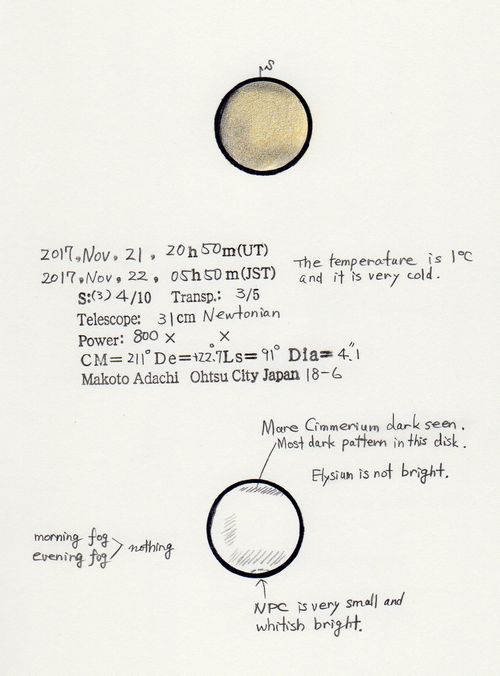 S
2017, Nov, 21, 20h50m(UT)
2017, Nov, 22, 05h50m(JST)
The temperature is 1°C
and it is very cold.
S:(3)4/10 Transp.: 3/5
Telescope: 31cm Newtonian
Power: 800× ×
CM=211° De=+22.°7 Ls=91° Dia=4."1
Makoto Adachi Ohtsu City Japan 18-6
Mare Cimmerium dark seen.
Most dark pattern in this disk.
Elysium is not bright.
morning fog
evening fog
nothing
NPC is very small and
whitish bright.